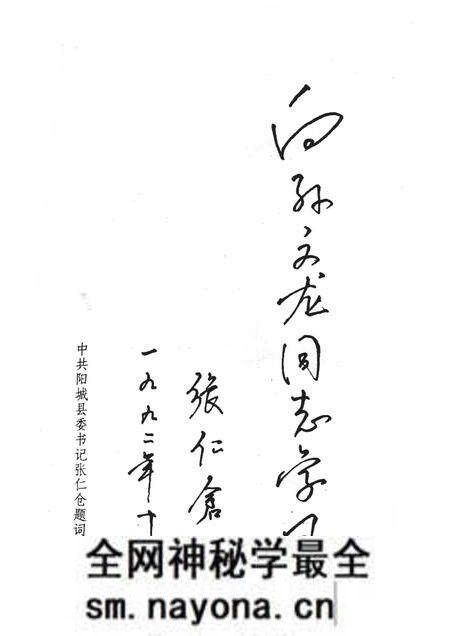 向孙文龙同志学习
张仁倉
一九九二年十
中共阳城县委书记张仁仓题词
全网神秘学最全
sm.nayona.cn